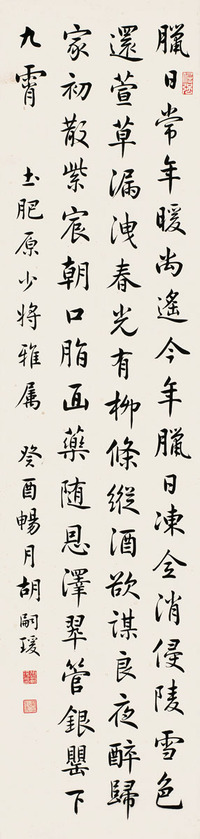 臘日常年暖尚遙今年臘日凍全消侵陵雪色
還萱草漏洩春光有柳條縱酒欲謀良夜醉歸
家初散紫宸朝口脂面藥隨恩澤翠管銀罌下
九霄　土肥原少將雅屬　癸酉暢月胡嗣瑗